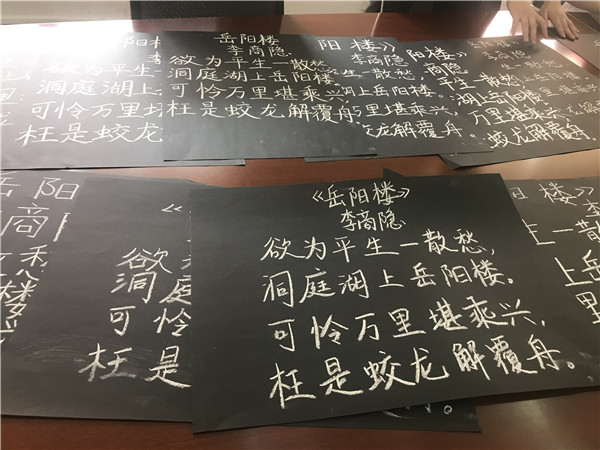 岳阳
为平生一
洞庭湖上
可怜万里
枉是蛟龙
岳阳楼
李商隐
欲为平生一散愁
洞庭湖上岳阳楼
可怜万里堪乘兴,
枉是蛟龙解覆舟
阳楼》
李商隐
散愁,
岳阳楼》
商隐
平生一散愁
湖上岳阳楼
万里堪乘兴,
蛟龙解覆舟。
岳阳
商
楼
《
欲为
洞庭
可
枉是
《岳阳楼》
李商隐
欲为平生一散愁,
洞庭湖上岳阳楼。
可怜万里堪乘兴,
枉是蛟龙解覆舟。
楼》
生一
上岳
里